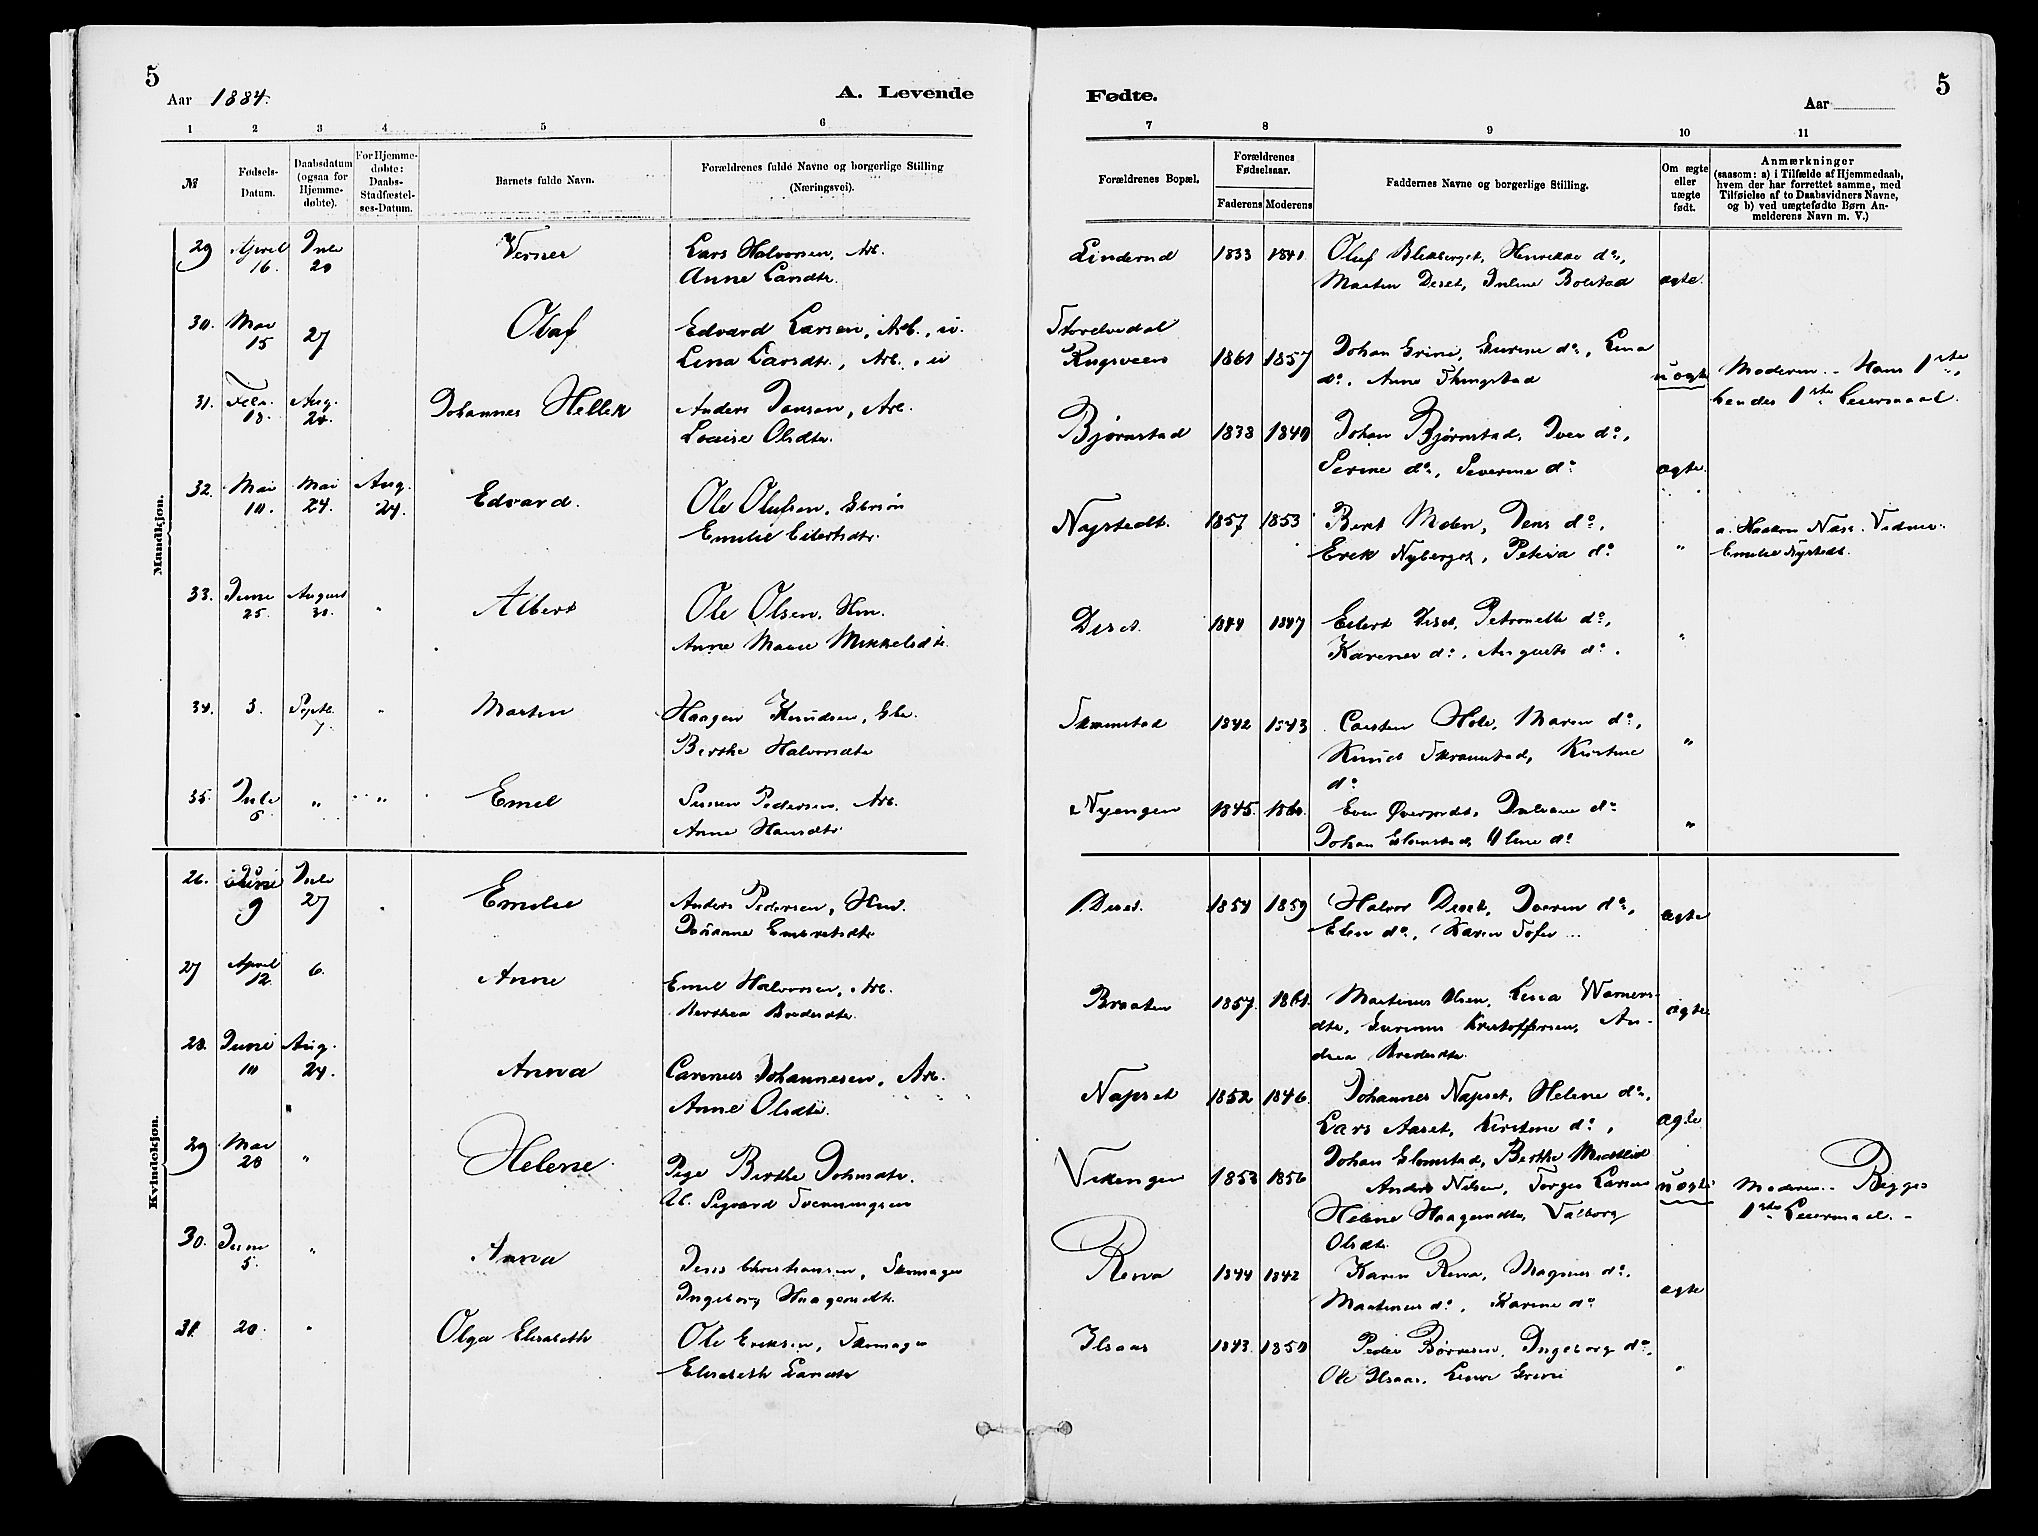 5
Aar 1884.
A. Levende
1 2 3 4 5 6
№
Fødsels-Datum.
Daabsdatum (ogsaa for Hjemmedøbte).
For Hjemmedøbte: Daabs-Stadfæstelses-Datum.
Barnets fulde Navn.
Forældrenes fulde Navne og borgerlige Stilling
(Næringsvei).
Mandkjøn.
29 April Juli Verner Lars Halvorsen, Arb.
16. 20 Anne Larsdtr.
30. Mai 27 Olaf Edvard Larsen, Arb., u.
15 Lina Larsdtr., Arb., u
31. Febr. Aug. Johannes Anders Jansen, Arb.
18. 24. Louise Olsdtr.
32. Mai Mai Aug. Edvard. Ole Olufsen,
10. 24. 24. Emilie Eilertsdtr.
33. June August " Albert Ole Olsen, Hm.
25. 31. Anne Marie Mikkelsdtr.
34. 3. Septb. " Martin Haagen Knudsen, Gbr.
7. Berthe Halvorsdtr
35. Juli " " Emil Pedersen, Arb.
6 Anne Hansdtr
Kvindekjøn.
26. Juni Juli Emilie Anders Pedersen, Hm.
9 27 Embretsdtr
27 April 6. Anne Emil Halvorsen, Arb.
12. Berthea
28. Juni Aug. Anna Carenus Johannesen, Arb.
10 24. Anne Olsdtr.
29 Mai " Helene. Pige Berthe Johnsdtr.
28 U. Sigvard
30. June " Anna Jens Christiansen, Skomager
5. Ingeborg Haagensdtr.
31. 20. " Olga Elisabeth Ole Eriksen, Skomager
Elisabeth Larsdtr
5
Fødte.
Aar
7 8 9 10 11
Forældrenes Bopæl.
Forældrenes Fødselsaar.
Faderens Moderens
Faddernes Navne og borgerlige Stilling.
Om ægte eller uægte født.
Anmærkninger
(saasom: a) i Tilfælde af Hjemmedaab,
hvem der har forrettet samme, med
Tilføielse af to Daabsvidners Navne,
og b) ved uægtefødte Børn Anmelderens Navn m. V.)
Linderud 1833 1841. Oluf Blikberget, Henrikke do,
Martin Deset, Juline Bolstad ægte.
Storelvedal
Rugsveen 1861 1857 Johan Grini, Gurine do, Lina
do, Anne uægte Moderen - Hans 1ste,
hendes 1ste Leiermaal.
Bjørnstad 1838 1840 Johan Bjørnstad, Iver do,
Serine do, Severine do ægte.
Nystedt. 1857 1853 Bent Moen, Jens do,
Erik Nyberget, Petra do " a. Haakon Næss. Vidner:
Emilie Nystedt.
Deset. 1844 1847 Eilert Deset, Petronelle do,
Karine do, Auguste do. "
Skramstad 1842 1843 Carsten Hole, Maren do,
Knud Skramstad, Kristine "
do
Nyengen 1845. 1860. Even Øverjordet, do
Johan Glomstad, Oline do "
Deset. 1854 1859 Halvor Deset, do,
Elin do, Karen ægte
Braaten 1857. 1861. Martinus Olsen, Lina
dtr, Gurinus Kristoffersen, Andrea ægte
Napset 1852 1846. Johannes Napset, Helene do,
Lars Aaset, Kirstine do, ægte
Vikengen 1853 1856 Johan Glomstad, Berthe
Anders Nilsen, Torger Larsen uægte Moderen - Begges
Helene Haagensdtr, Valborg 1ste Leiermaal. -
Olsdtr.
Rena 1844 1842 Karen Rena, Magnus do,
Martinus do, Karine do ægte
Ilsaas 1843. 1850 Peder Børresen, Ingeborg do,
Ole Ilsaas, Grini "